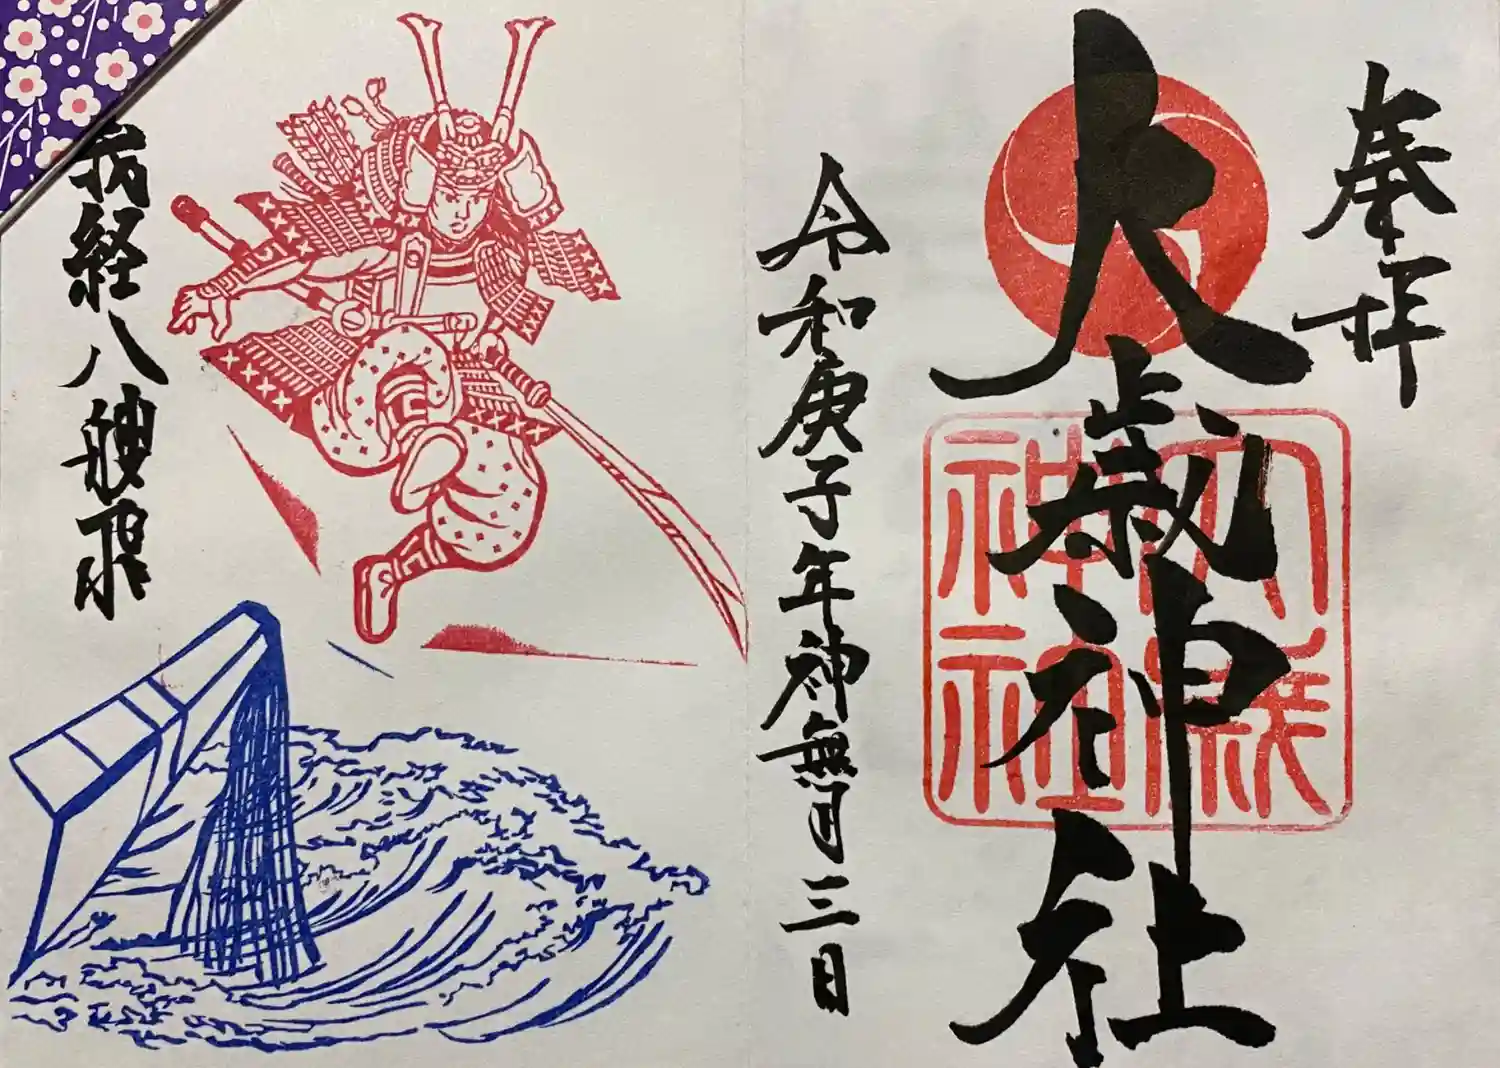 奉拝
大歳神社
大歳
神社
令和庚子年神無月三日
義経八艘飛